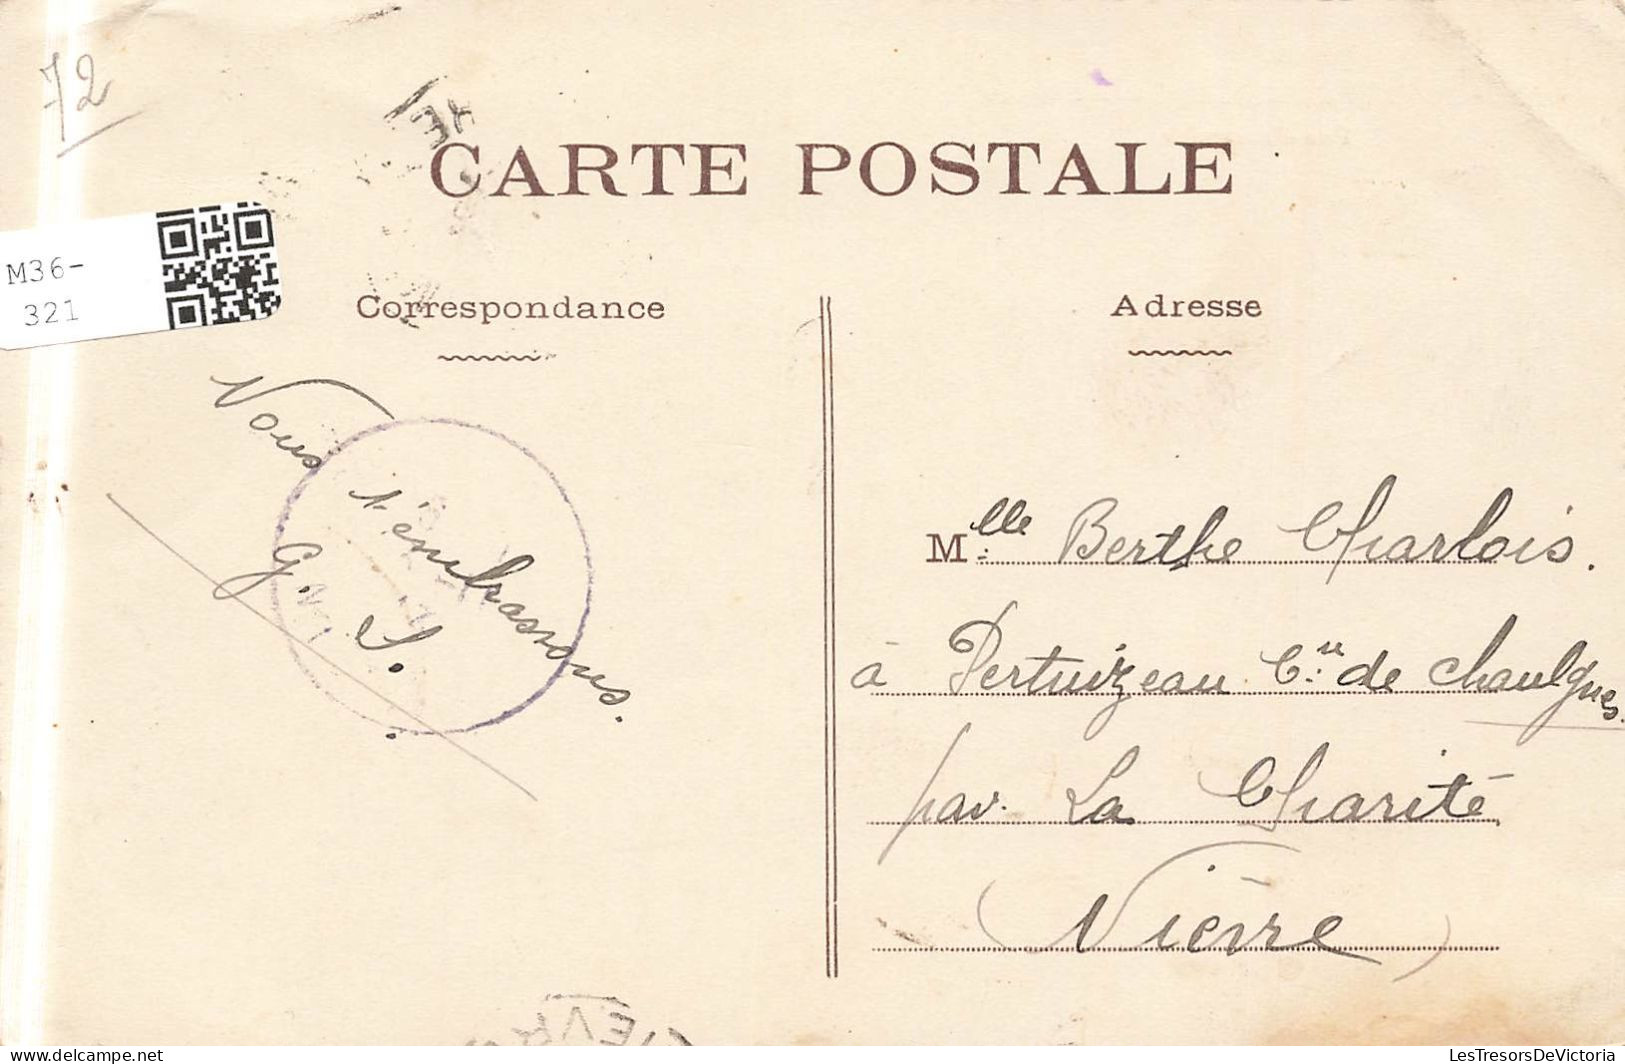 72
CARTE POSTALE
M36-
321
Correspondance
Adresse
Vous
t'embrassons.
G. S.
Mlle Berthe Charlois.
à Pertuizeau Cne de Chaulgnes.
par La Charité
(Nièvre)
LesTresorsDeVictoria